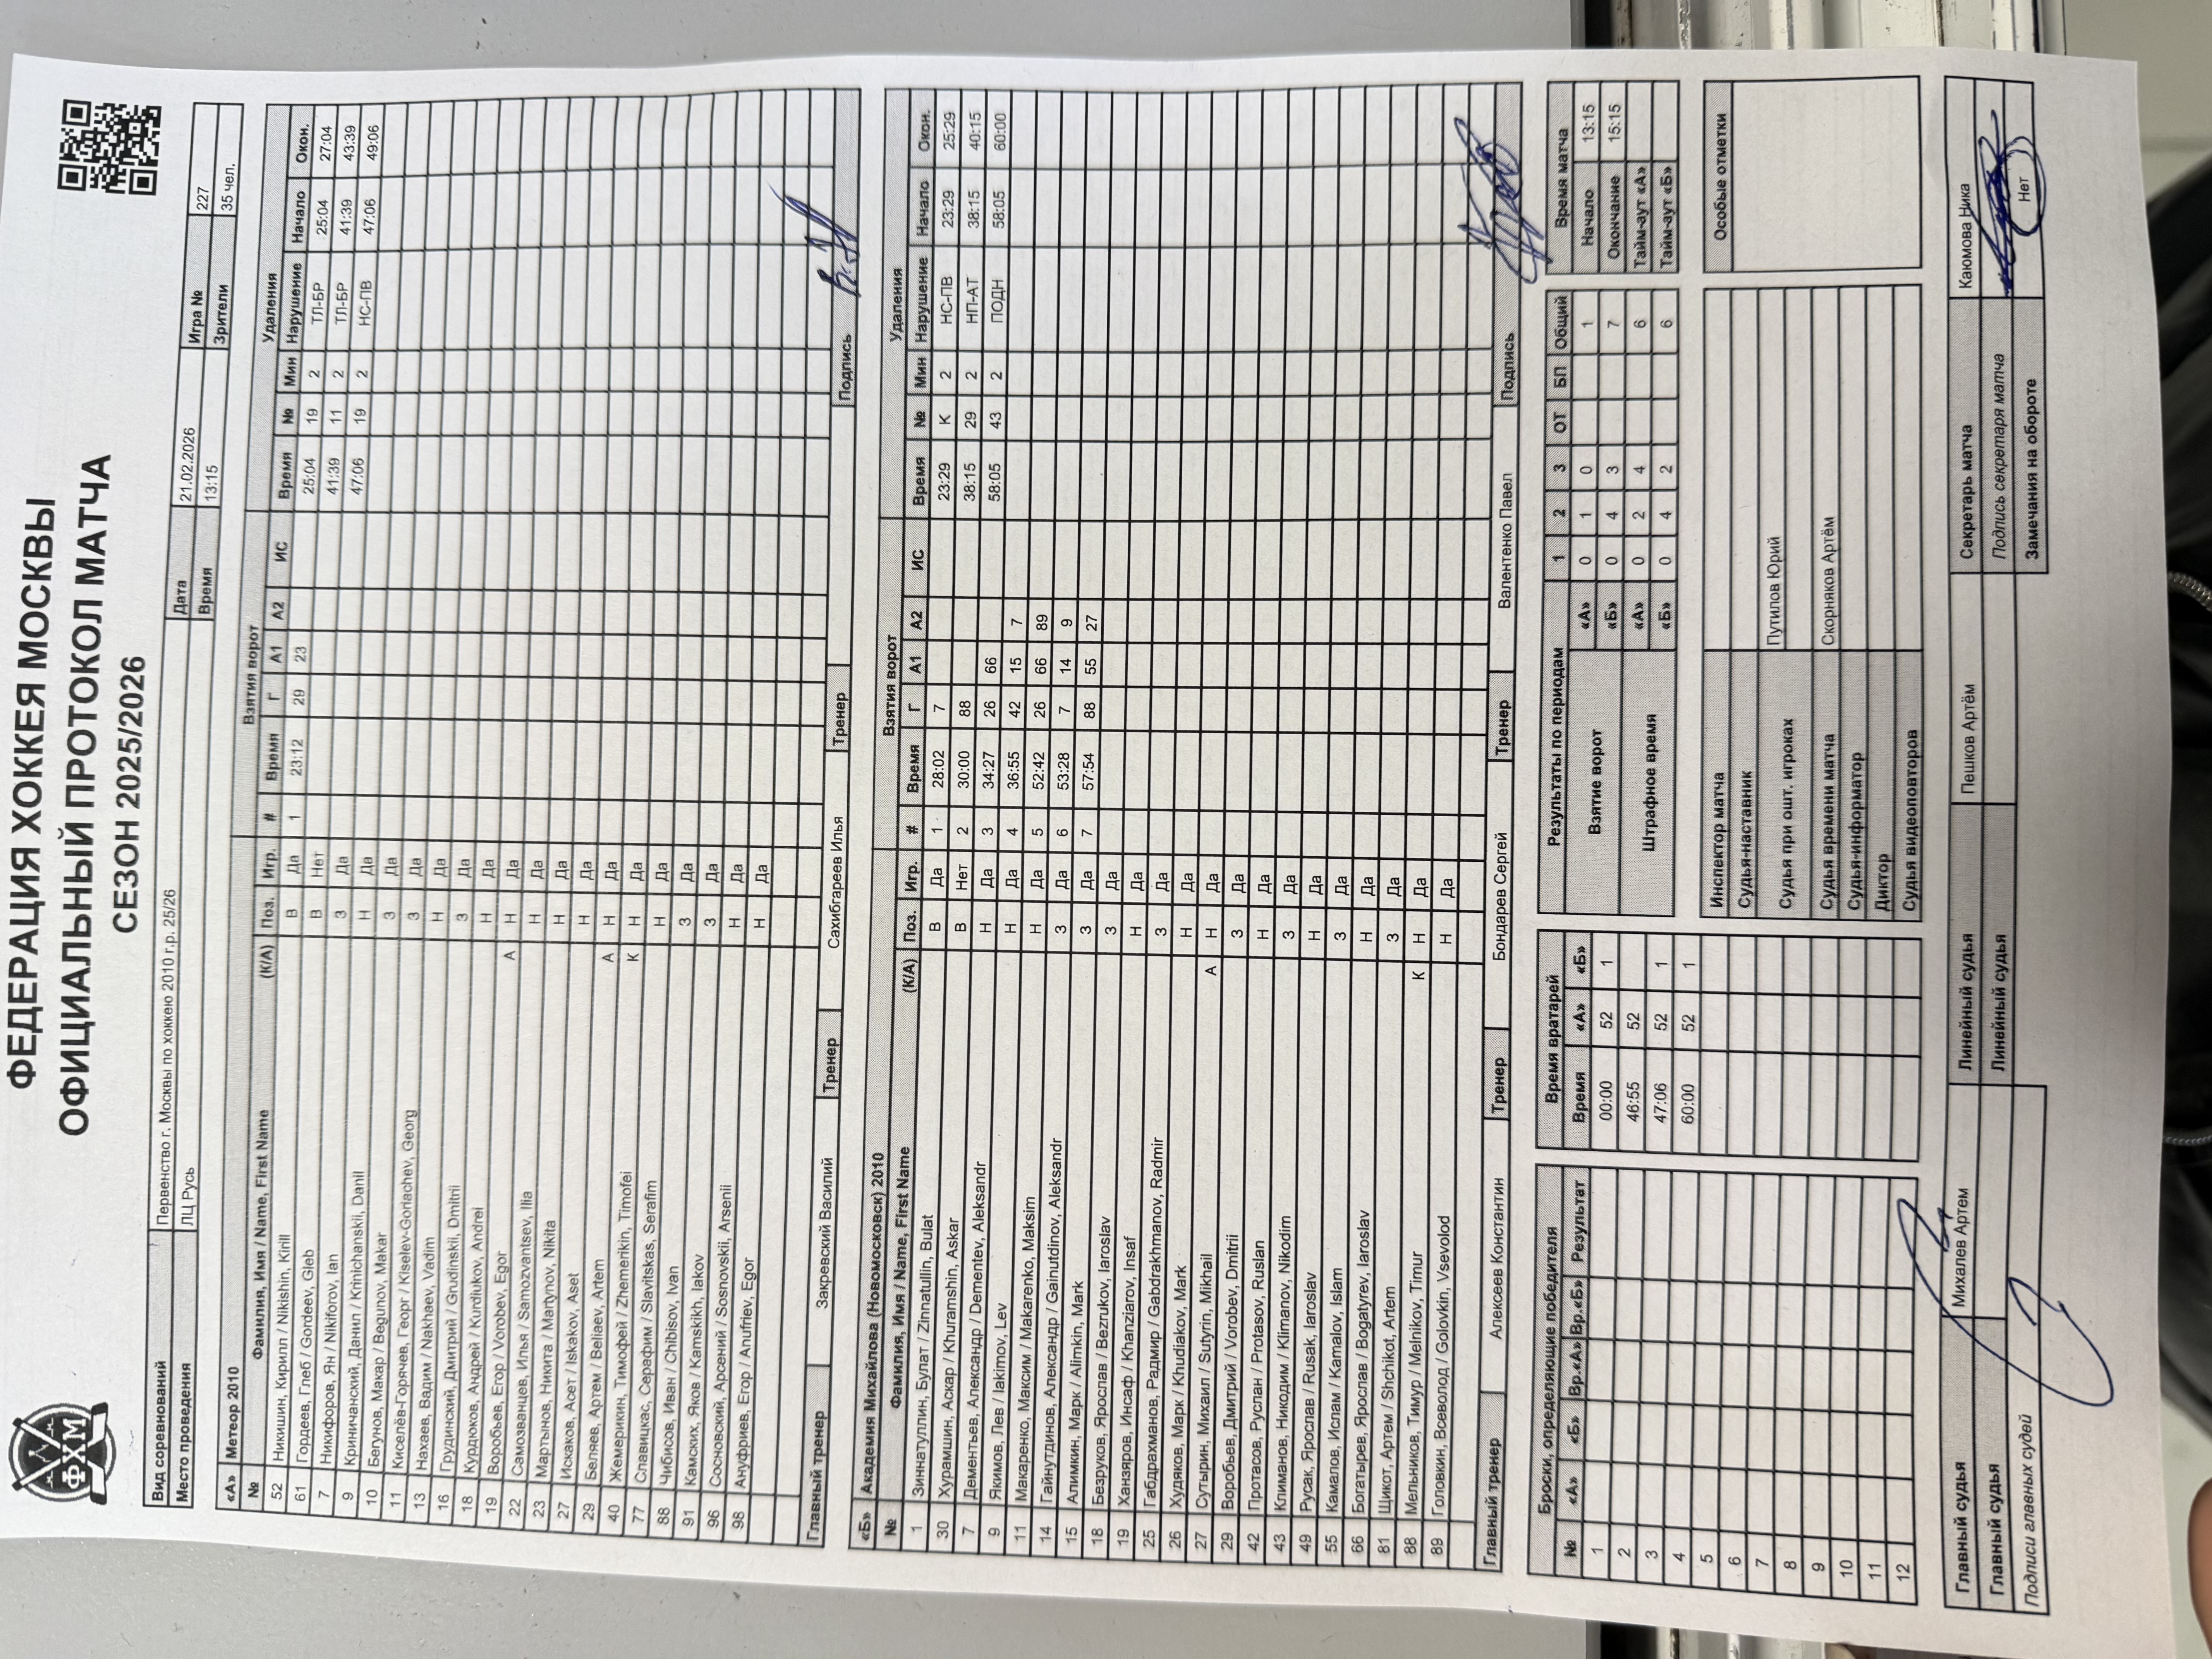 ФЕДЕРАЦИЯ ХОККЕЯ МОСКВЫ
ОФИЦИАЛЬНЫЙ ПРОТОКОЛ МАТЧА
СЕЗОН 2025/2026
ФХМ
Вид соревнований Первенство г. Москвы по хоккею 2010 г.р. 25/26 Дата 21.02.2026 Игра № 227
Место проведения ЛЦ Русь Время 13:15 Зрители 35 чел.
«А» Метеор 2010 Взятия ворот Удаления
№ Фамилия, Имя / Name, First Name (К/А) Поз. Игр. # Время Г А1 А2 ИС Время № Мин Нарушение Начало Окон.
52 Никишин, Кирилл / Nikishin, Kirill В Да 1 23:12 29 23 25:04 19 2 ТЛ-БР 25:04 27:04
61 Гордеев, Глеб / Gordeev, Gleb В Нет 41:39 11 2 ТЛ-БР 41:39 43:39
7 Никифоров, Ян / Nikiforov, Ian З Да 47:06 19 2 НС-ПВ 47:06 49:06
9 Криничанский, Данил / Krinichanskii, Danil Н Да
10 Бегунов, Макар / Begunov, Makar З Да
11 Киселёв-Горячев, Георг / Kiselev-Goriachev, Georg З Да
13 Нахаев, Вадим / Nakhaev, Vadim Н Да
16 Грудинский, Дмитрий / Grudinskii, Dmitrii З Да
18 Курдюков, Андрей / Kurdiukov, Andrei Н Да
19 Воробьев, Егор / Vorobev, Egor А Н Да
22 Самозванцев, Илья / Samozvantsev, Ilia Н Да
23 Мартынов, Никита / Martynov, Nikita Н Да
27 Искаков, Асет / Iskakov, Aset Н Да
29 Беляев, Артем / Beliaev, Artem А Н Да
40 Жемерикин, Тимофей / Zhemerikin, Timofei К Н Да
77 Славицкас, Серафим / Slavitskas, Serafim Н Да
88 Чибисов, Иван / Chibisov, Ivan З Да
91 Камских, Яков / Kamskikh, Iakov З Да
96 Сосновский, Арсений / Sosnovskii, Arsenii Н Да
98 Ануфриев, Егор / Anufriev, Egor Н Да
Главный тренер Закревский Василий Тренер Сахибгареев Илья Тренер Подпись
«Б» Академия Михайлова (Новомосковск) 2010 Взятия ворот Удаления
№ Фамилия, Имя / Name, First Name (К/А) Поз. Игр. # Время Г А1 А2 ИС Время № Мин Нарушение Начало Окон.
1 Зиннатуллин, Булат / Zinnatullin, Bulat В Да 1 28:02 7 23:29 К 2 НС-ПВ 23:29 25:29
30 Хурамшин, Аскар / Khuramshin, Askar В Нет 2 30:00 88 38:15 29 2 НП-АТ 38:15 40:15
7 Дементьев, Александр / Dementev, Aleksandr Н Да 3 34:27 26 66 58:05 43 2 ПОДН 58:05 60:00
9 Якимов, Лев / Iakimov, Lev Н Да 4 36:55 42 15 7
11 Макаренко, Максим / Makarenko, Maksim Н Да 5 52:42 26 66 89
14 Гайнутдинов, Александр / Gainutdinov, Aleksandr З Да 6 53:28 7 14 9
15 Алимкин, Марк / Alimkin, Mark З Да 7 57:54 88 55 27
18 Безруков, Ярослав / Bezrukov, Iaroslav З Да
19 Ханзяров, Инсаф / Khanziarov, Insaf Н Да
25 Габдрахманов, Радмир / Gabdrakhmanov, Radmir З Да
26 Худяков, Марк / Khudiakov, Mark Н Да
27 Сутырин, Михаил / Sutyrin, Mikhail А Н Да
29 Воробьев, Дмитрий / Vorobev, Dmitrii З Да
42 Протасов, Руслан / Protasov, Ruslan Н Да
43 Климанов, Никодим / Klimanov, Nikodim З Да
49 Русак, Ярослав / Rusak, Iaroslav Н Да
55 Камалов, Ислам / Kamalov, Islam З Да
66 Богатырев, Ярослав / Bogatyrev, Iaroslav Н Да
81 Щикот, Артем / Shchikot, Artem З Да
88 Мельников, Тимур / Melnikov, Timur К Н Да
89 Головкин, Всеволод / Golovkin, Vsevolod Н Да
Главный тренер Алексеев Константин Тренер Бондарев Сергей Тренер Валентенко Павел Подпись
Броски, определяющие победителя Время вратарей Результаты по периодам Время матча
№ «А» «Б» Вр.«А» Вр.«Б» Результат Время «А» «Б» 1 2 3 ОТ БП Общий Начало 13:15
1 00:00 52 1 Взятие ворот «А» 0 1 0 1 Окончание 15:15
2 46:55 52 «Б» 0 4 3 7 Тайм-аут «А»
3 47:06 52 1 Штрафное время «А» 0 2 4 6 Тайм-аут «Б»
4 60:00 52 1 «Б» 0 4 2 6
5 Инспектор матча Особые отметки
6 Судья-наставник
7 Судья при ошт. игроках Путилов Юрий
8
9 Судья времени матча Скорняков Артём
10 Судья-информатор
11 Диктор
12 Судья видеоповторов
Главный судья Михалев Артем Линейный судья Пешков Артём Секретарь матча Каюмова Ника
Главный судья Линейный судья Подпись секретаря матча
Подписи главных судей Замечания на обороте Нет